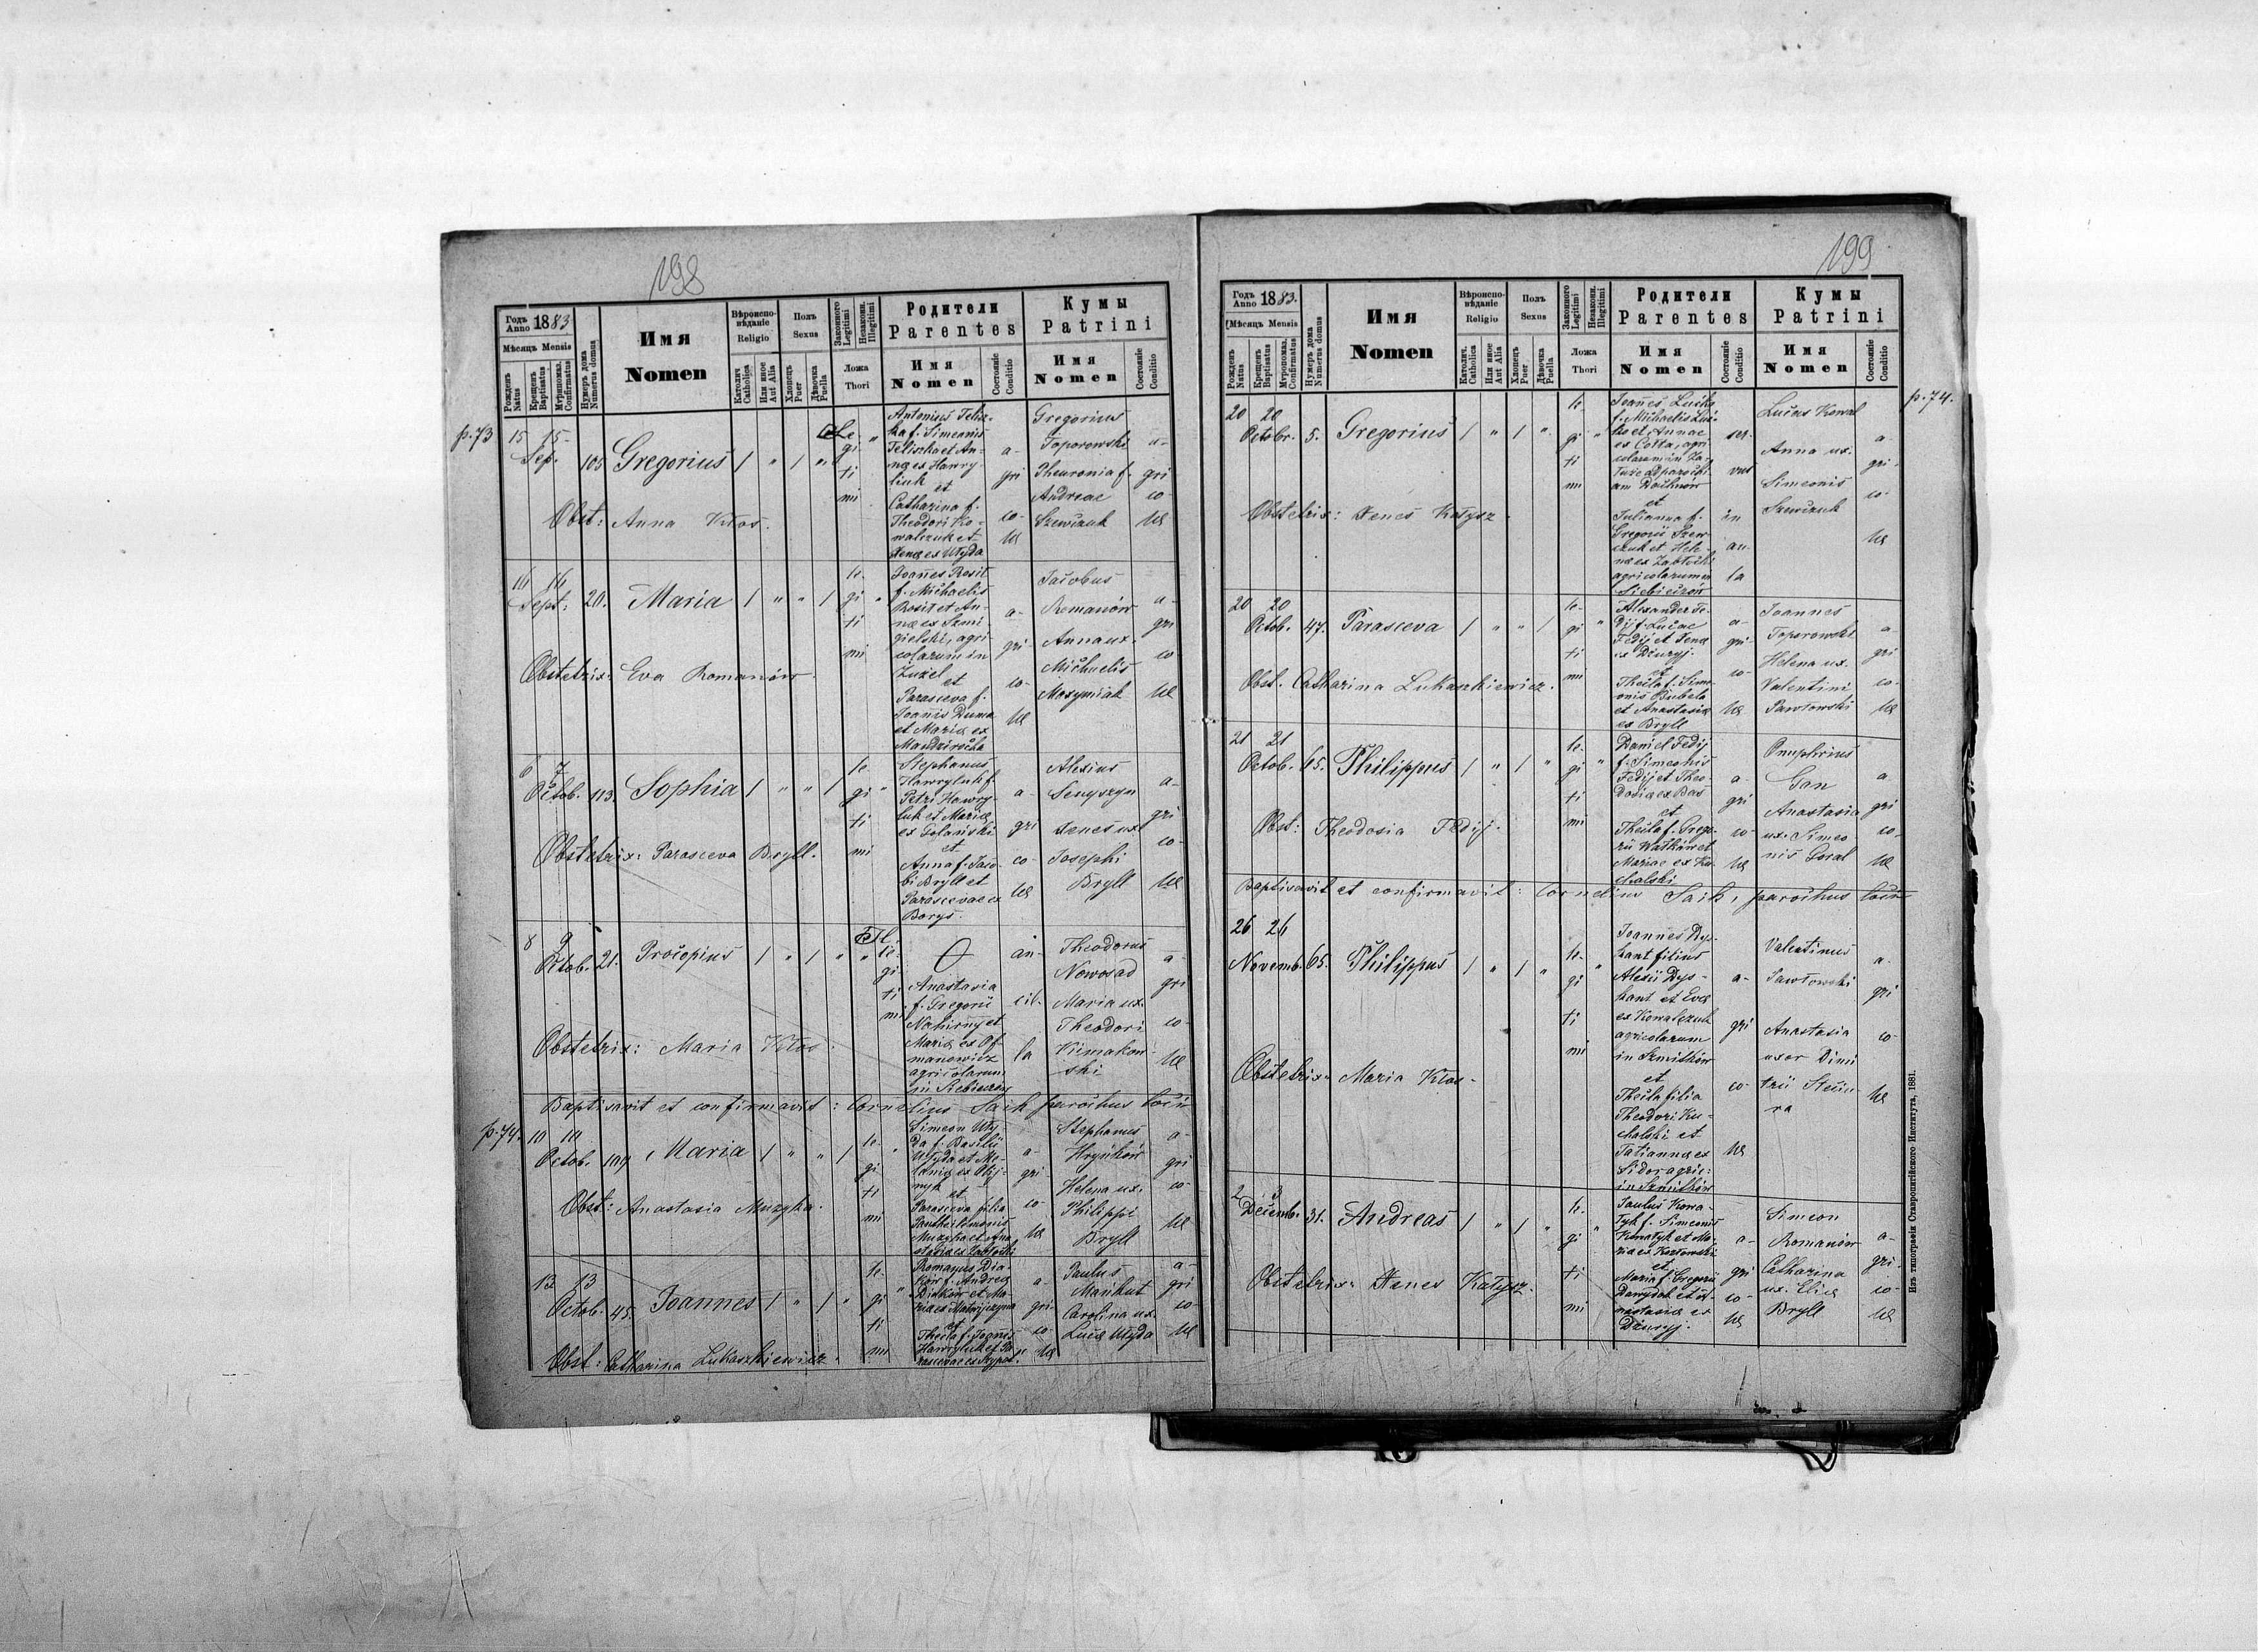 198
Годъ Anno 1883
Мѣсяцъ Mensis
Рожденъ Natus
Крещенъ Baptisatus
Мѵропомаз. Confirmatus
Нумеръ дома Numerus domus
Имя
Nomen
Вѣроиспо-
вѣданіе
Religio
Католич. Catholica
Или иное Aut Alia
Полъ
Sexus
Хлопецъ Puer
Дѣвочка Puella
Законного Legitimi
Незаконн. Illegitimi
Ложа
Thori
Родители
Parentes
Имя
Nomen
Состояніе Conditio
Кумы
Patrini
Имя
Nomen
Состояніе Conditio
p. 73
15 15
Sep. 105 Gregorius 1 " 1 "
Le
gi
ti
mi
Antonius Telisz-
ka f. Simeonis
Teliszka et An-
nae ex Hawry-
liuk et
Catharina f.
Theodori Ko-
walczuk et
Xenae ex Włyda
a-
gri
co-
lae
Gregorius
Toporowski
Pheuronia f.
Andreae
Szewczuk
a-
gri
co-
lae
Obst: Anna Kłos.
16 16
Sept. 20. Maria 1 " " 1
le-
gi "
ti
mi
Joannes Rosit
f. Michaelis
Rosit et An-
nae ex Szmi
gielski, agri-
colarum in
Żużel
et
Parasceva f.
Joannis Duma
et Mariae ex
a-
gri-
co-
lae
Jacobus
Romanów
Anna ux.
Michaelis
a-
gri
co-
lae
Obstetrix: Eva Romanów.
6 7
Octob. 113. Sophia 1 " " 1
le
gi "
ti
mi
Stephanus
Hawryluk f.
Petri Hawry-
luk et Mariae
ex Golanski
et
Anna f. Jaco-
bi Bryll et
Parascevae ex
Borys.
a-
gri
co-
lae
Alexius
Senyszyn
Xenes ux.
Josephi
Bryll
a-
gri
co-
lae
Obstetrix: Parasceva Bryll.
8 9
Octob. 21. Procopius 1 " 1 " "
Il-
le-
gi-
ti
mi
O
Anastasia
f. Gregorii
Nahirnyj et
Mariae ex Of-
manowicz
agricolarum
in Siebieczów
an-
cil-
la
Theodorus
Nowosad
Maria ux.
Theodori
Klimakow-
ski
a-
gri
co-
lae
Obstetrix: Maria Kłos.
Baptisavit et confirmavit: Cornelius Saik parochus loci
p. 74.
10 10
Octob. 109. Maria 1 " " 1
le-
gi-
ti
mi
Simeon Wły-
da f. Basilii
Włyda et Me-
laniae ex Olij-
nyk et
Parasceva filia
Panthelemonis
Muzyka et Ana-
stasiae ex Zabłocki
a-
gri
co-
lae
Stephanus
Hryńków
Helena ux.
Philippi
Bryll
a-
gri
co-
lae
Obst: Anastasia Muzyka.
13 13
Octob. 45. Joannes 1 " 1 "
le-
gi "
ti
mi
Romanus Dia-
ków f. Andreae
Diaków et Ma-
riae ex Matwijczyna
et
Thecla f. Joannis
Hawryluk et Pa-
a-
gri-
co-
lae
Paulus
Mańkut
Carolina ux.
Lucae Włyda
a-
gri
co-
lae
Obst: Catharina Lukaszkiewicz.
199
Годъ Anno 1883.
Мѣсяцъ Mensis
Рожденъ Natus
Крещенъ Baptisatus
Мѵропомаз. Confirmatus
Нумеръ дома Numerus domus
Имя
Nomen
Вѣроиспо-
вѣданіе
Religio
Католич. Catholica
Или иное Aut Alia
Полъ
Sexus
Хлопецъ Puer
Дѣвочка Puella
Законного Legitimi
Незаконн. Illegitimi
Ложа
Thori
Родители
Parentes
Имя
Nomen
Состояніе Conditio
Кумы
Patrini
Имя
Nomen
Состояніе Conditio
p. 74.
20 20
Octobr. 5. Gregorius 1 " 1 "
le
gi "
ti
mi
Joannes Lućko
f. Michaelis Luć-
ko et Annae
ex Cotta, agri
colarum in
ad parochi-
am
et
Julianna f.
Gregorii Szew-
czuk et Hele-
nae ex Zabłocki
agricolarum in
Siebieczów
ser-
vus
an-
la
Lucas Kowal
Anna ux.
Simeonis
Szewczuk
a-
gri-
co-
lae
Obstetrix: Xenes Kałysz.
20 20
Octob. 47. Parasceva 1 " " 1
le-
gi "
ti
mi
Alexander Fe-
dij f. Lucae
Fedij et Xenae
ex Dzuryj.
et
Thecla f. Sime-
onis Bubela
et Anastasiae
ex Bryll
a-
gri-
co-
lae
Joannes
Toporowski
Helena ux.
Valentini
Pawłowski
a-
gri
co-
lae
Obst. Catharina Lukaszkiewicz.
21 21
Octob. 65. Philippus 1 " 1 "
le-
gi "
ti
mi
Daniel Fedij
f. Simeonis
Fedij et Theo-
dosiae ex Bas
et
Thecla f. Grego-
rii et
Mariae ex Ku-
chalski
a-
gri
co-
lae
Onuphrius
Gan
Anastasia
ux. Simeo-
nis Goral
a
gri
co-
lae
Obst: Theodosia Fedij.
Baptisavit et confirmavit: Cornelius Saik, parochus loci
26 26
Novemb. 65. Philippus 1 " 1 "
le-
gi "
ti
mi
Joannes Dys-
kant filius
Alexii Dys-
kant et Evae
ex Kowalczuk
agricolarum
in Szmitków
et
Thecla filia
Theodori Ku-
chalski et
Tatiannae ex
Sidor agric:
in Szmitków
a-
gri
co-
lae
Valentinus
Pawłowski
Anastasia
uxor Dimi
trii Steciu-
ra
a-
gri
co-
lae
Obstetrix: Maria Kłos.
2 3
Decemb. 31. Andreas 1 " 1 "
le-
gi "
ti
mi
Paulus Kowa-
lyk f. Simeonis
Kowalyk et Ma-
riae ex Kozłowski
et
Maria f. Gregorii
Dawydok et A-
nastasiae ex
Dzuryj.
a-
gri
co-
lae
Simeon
Romanów
Catharina
ux. Eliae
Bryll
a-
gri.
co-
lae
Obstetrix: Xenes Kałysz.
Изъ типографіи Ставропигійского Института, 1881.